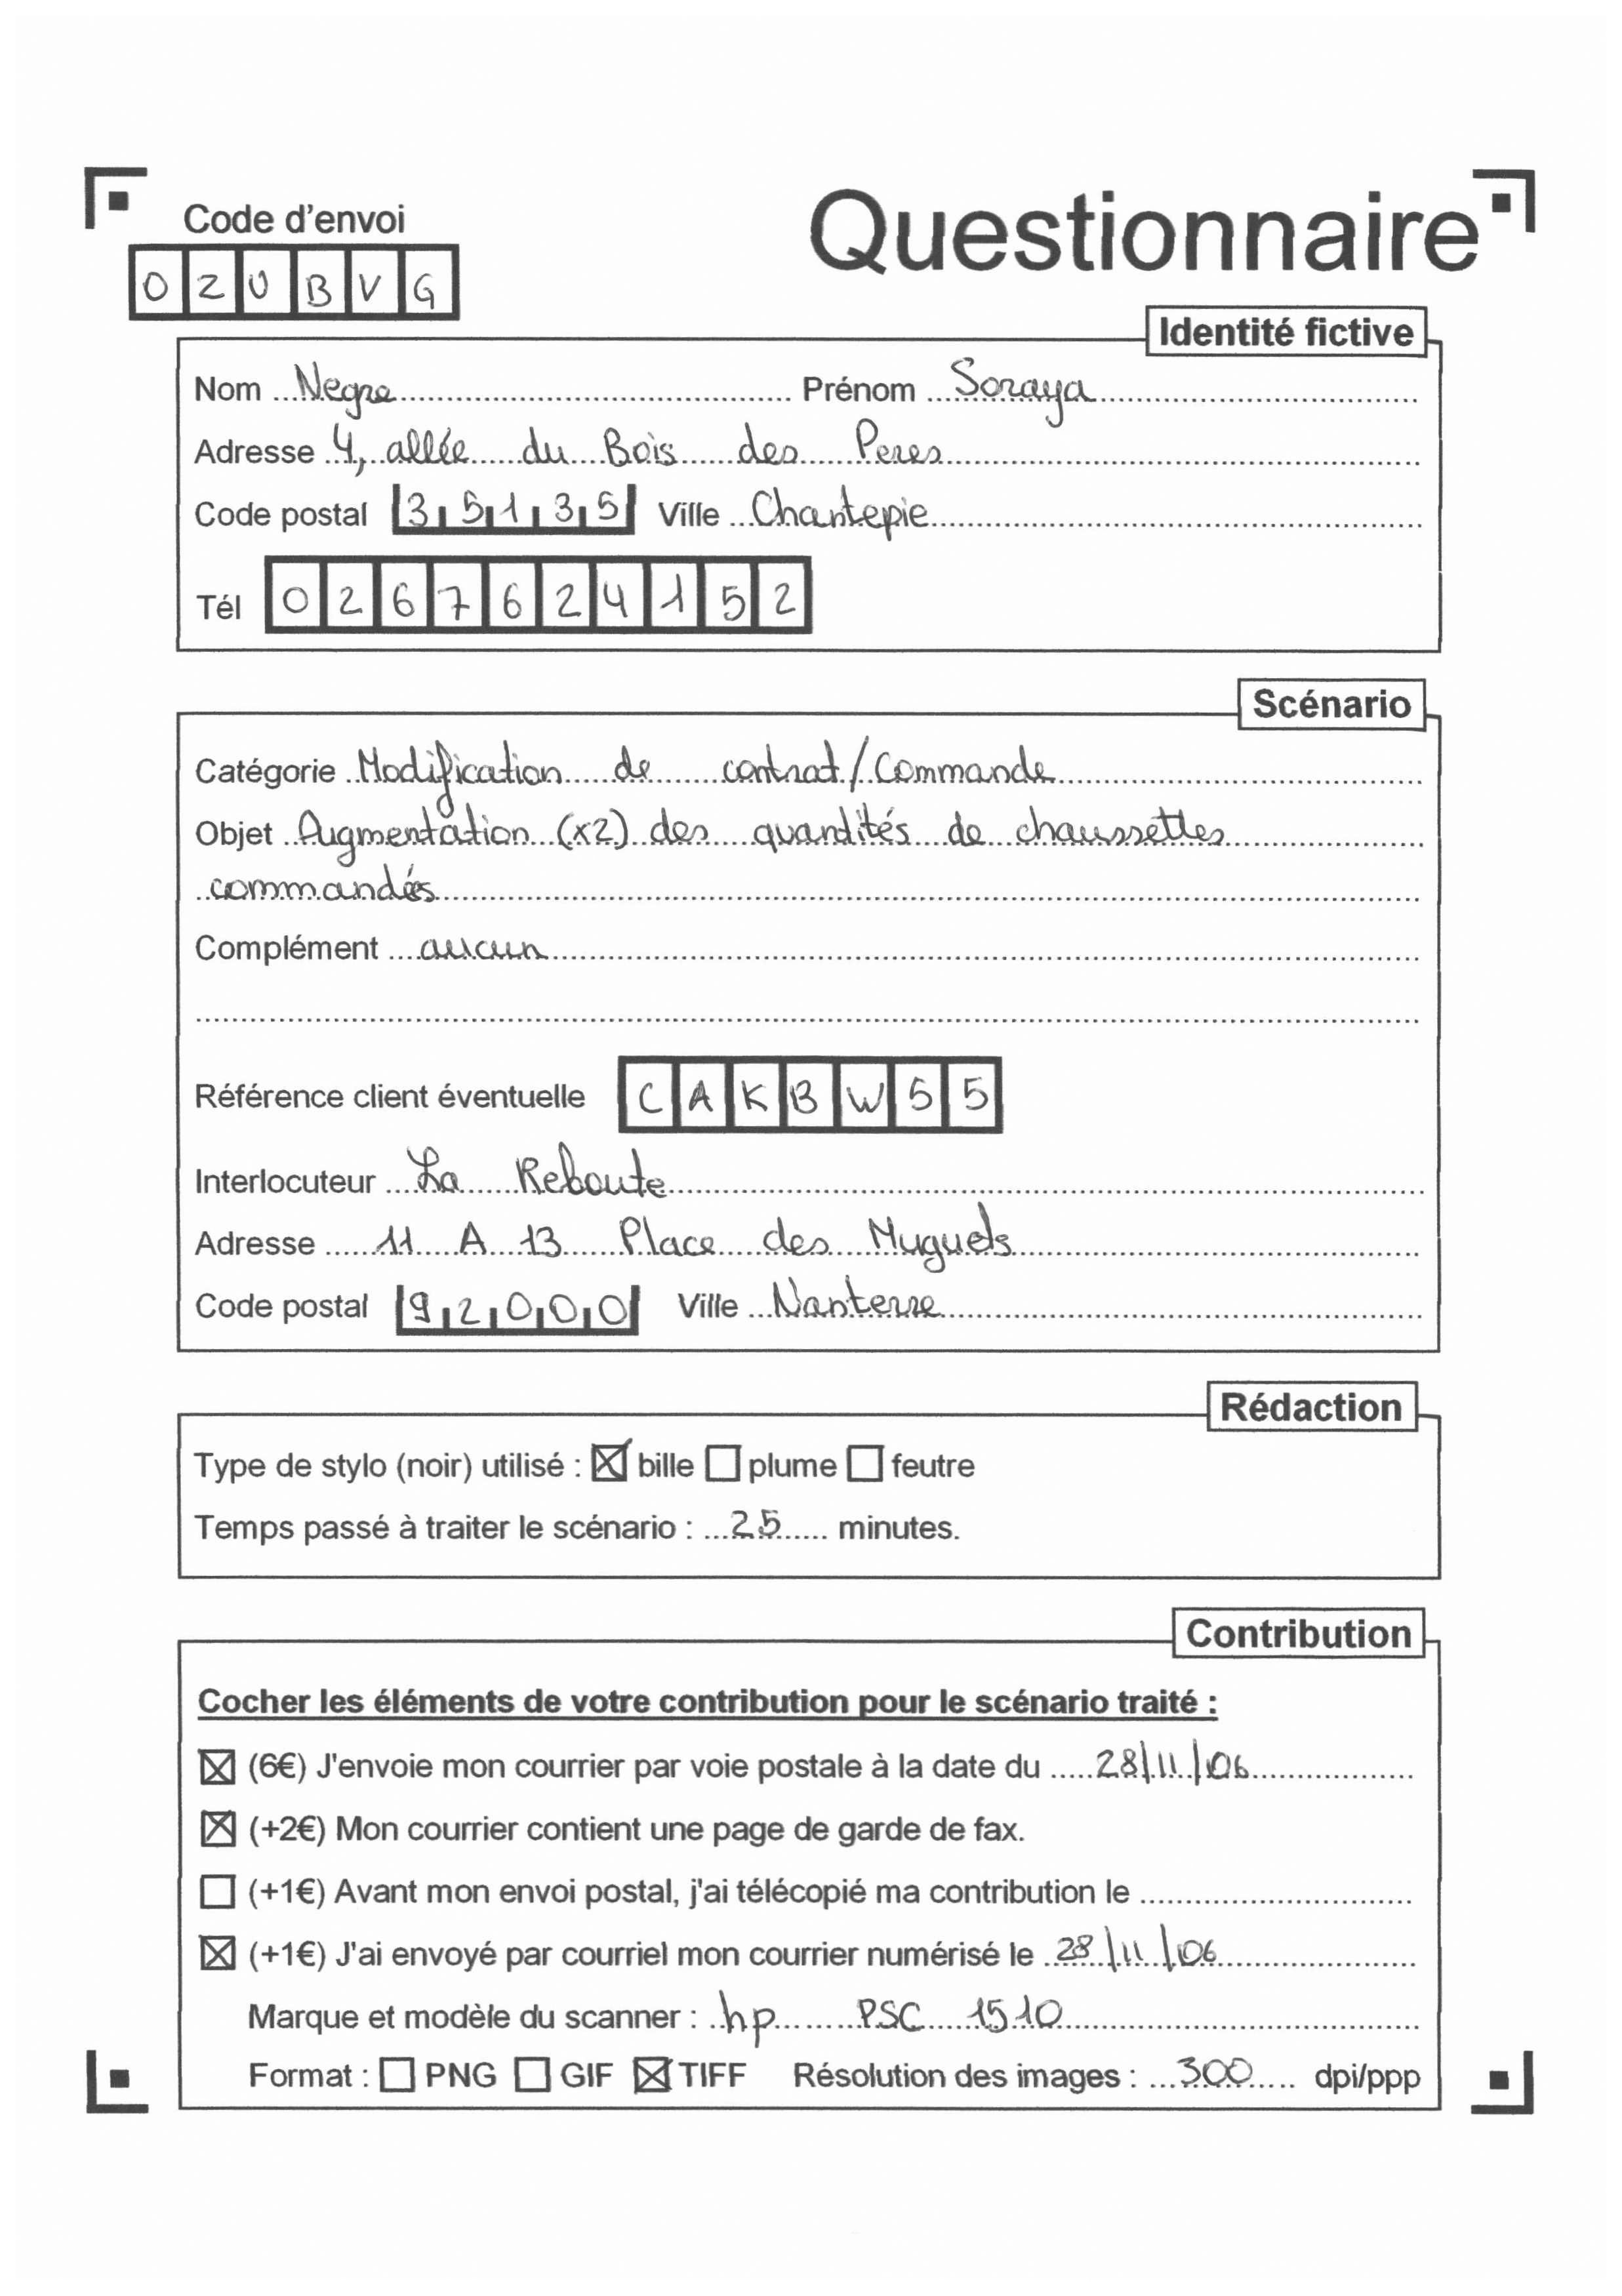 Code d'envoi
Questionnaire
O Z U B V G
Identité fictive
Nom Negre Prénom Soraya
Adresse 4, allée du Bois des Peres
Code postal 35135 Ville Chantepie
Tél 0267624152
Scénario
Catégorie Modification de contrat/Commande
Objet Augmentation (x2) des quantités de chaussettes
commandés
Complément aucun
Référence client éventuelle CAKBW55
Interlocuteur La Reboute
Adresse 11 A 13 Place des Muguets
Code postal 92000 Ville Nanterre
Rédaction
Type de stylo (noir) utilisé : ☒ bille ☐ plume ☐ feutre
Temps passé à traiter le scénario : 25 minutes.
Contribution
Cocher les éléments de votre contribution pour le scénario traité :
☒ (6€) J'envoie mon courrier par voie postale à la date du 28/11/06
☒ (+2€) Mon courrier contient une page de garde de fax.
☐ (+1€) Avant mon envoi postal, j'ai télécopié ma contribution le
☒ (+1€) J'ai envoyé par courriel mon courrier numérisé le 28/11/06
Marque et modèle du scanner : hp PSC 1510
Format : ☐ PNG ☐ GIF ☒ TIFF Résolution des images : 300 dpi/ppp